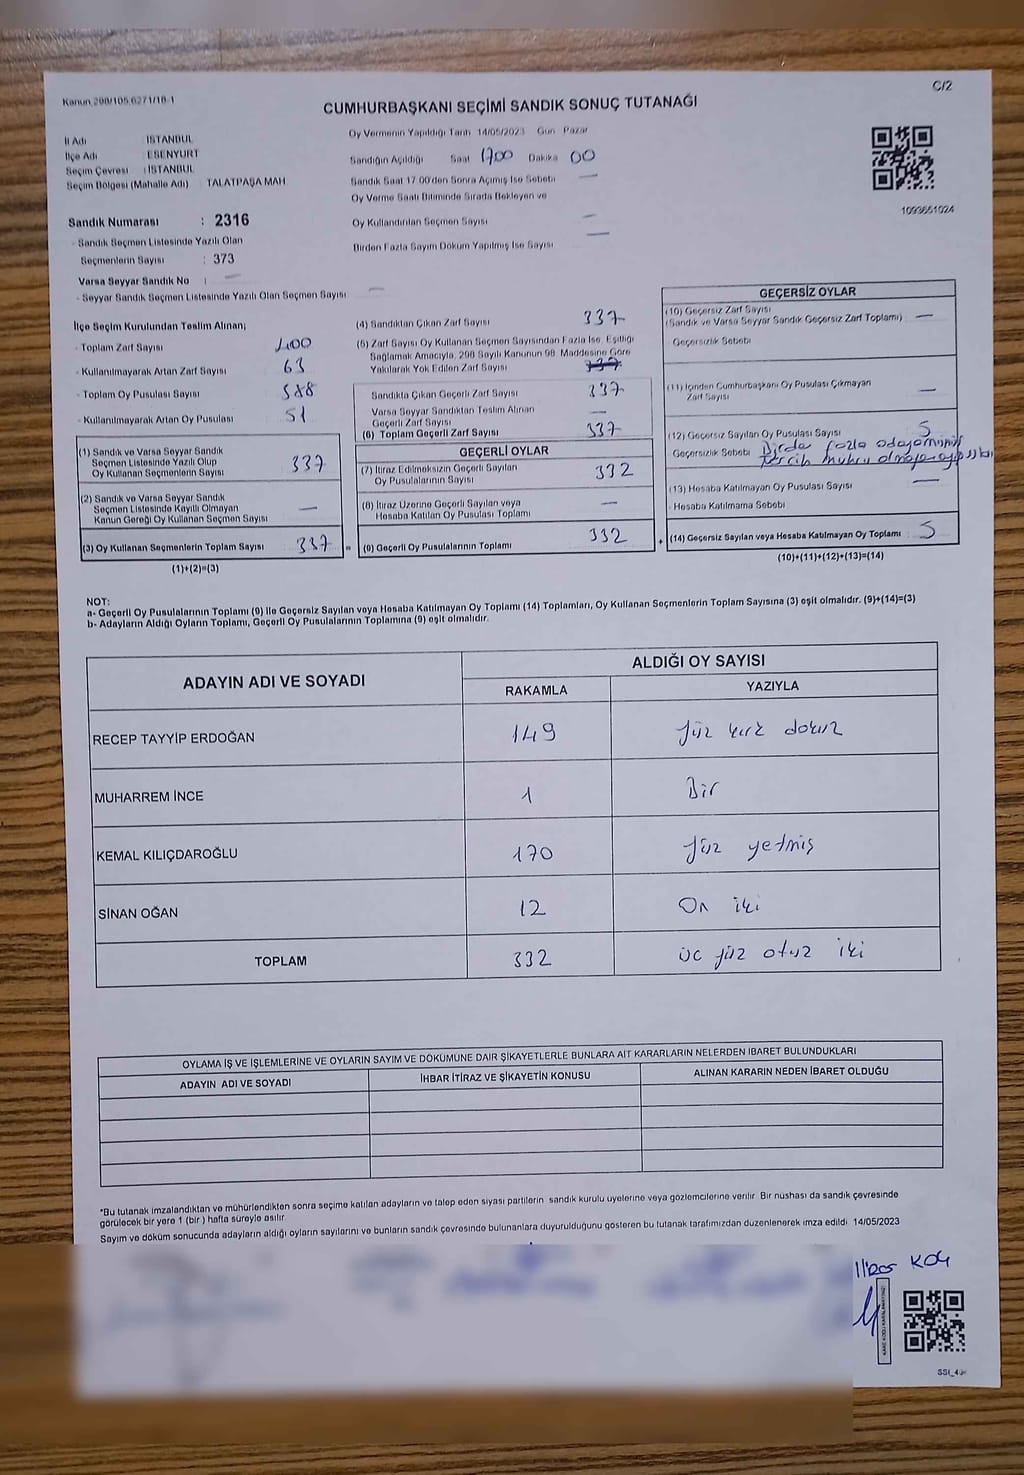 Kanun 298/105,6271/18-1
C/2
CUMHURBAŞKANI SEÇİMİ SANDIK SONUÇ TUTANAĞI
İl Adı : İSTANBUL
İlçe Adı : ESENYURT
Seçim Çevresi : İSTANBUL
Seçim Bölgesi (Mahalle Adı) TALATPAŞA MAH
Sandık Numarası : 2316
- Sandık Seçmen Listesinde Yazılı Olan
Seçmenlerin Sayısı : 373
Varsa Seyyar Sandık No : —
- Seyyar Sandık Seçmen Listesinde Yazılı Olan Seçmen Sayısı —
Oy Vermenin Yapıldığı Tarih 14/05/2023 Gün Pazar
Sandığın Açıldığı Saat 1700 Dakika 00
Sandık Saat 17:00'den Sonra Açılmış İse Sebebi —
Oy Verme Saati Bitiminde Sırada Bekleyen ve
Oy Kullandırılan Seçmen Sayısı —
Birden Fazla Sayım Döküm Yapılmış İse Sayısı —
1093651024
İlçe Seçim Kurulundan Teslim Alınan;
- Toplam Zarf Sayısı 400
- Kullanılmayarak Artan Zarf Sayısı 63
- Toplam Oy Pusulası Sayısı 388
- Kullanılmayarak Artan Oy Pusulası 51
(1) Sandık ve Varsa Seyyar Sandık
Seçmen Listesinde Yazılı Olup
Oy Kullanan Seçmenlerin Sayısı 337
(2) Sandık ve Varsa Seyyar Sandık
Seçmen Listesinde Kayıtlı Olmayan
Kanun Gereği Oy Kullanan Seçmen Sayısı —
(3) Oy Kullanan Seçmenlerin Toplam Sayısı 337
(1)+(2)=(3)
(4) Sandıktan Çıkan Zarf Sayısı 337
(5) Zarf Sayısı Oy Kullanan Seçmen Sayısından Fazla İse, Eşitliği
Sağlamak Amacıyla, 298 Sayılı Kanunun 98. Maddesine Göre
Yakılarak Yok Edilen Zarf Sayısı 337
Sandıkta Çıkan Geçerli Zarf Sayısı 337
Varsa Seyyar Sandıktan Teslim Alınan
Geçerli Zarf Sayısı —
(6) Toplam Geçerli Zarf Sayısı 337
GEÇERLİ OYLAR
(7) İtiraz Edilmeksizin Geçerli Sayılan
Oy Pusulalarının Sayısı 332
(8) İtiraz Üzerine Geçerli Sayılan veya
Hesaba Katılan Oy Pusulası Toplamı —
= (9) Geçerli Oy Pusulalarının Toplamı 332
GEÇERSİZ OYLAR
(10) Geçersiz Zarf Sayısı
(Sandık ve Varsa Seyyar Sandık Geçersiz Zarf Toplamı) —
Geçersizlik Sebebi
(11) İçinden Cumhurbaşkanı Oy Pusulası Çıkmayan
Zarf Sayısı —
(12) Geçersiz Sayılan Oy Pusulası Sayısı 5
Geçersizlik Sebebi Birde fazla
tercih
(13) Hesaba Katılmayan Oy Pusulası Sayısı —
- Hesaba Katılmama Sebebi
+ (14) Geçersiz Sayılan veya Hesaba Katılmayan Oy Toplamı 5
(10)+(11)+(12)+(13)=(14)
NOT:
a- Geçerli Oy Pusulalarının Toplamı (9) ile Geçersiz Sayılan veya Hesaba Katılmayan Oy Toplamı (14) Toplamları, Oy Kullanan Seçmenlerin Toplam Sayısına (3) eşit olmalıdır. (9)+(14)=(3)
b- Adayların Aldığı Oyların Toplamı, Geçerli Oy Pusulalarının Toplamına (9) eşit olmalıdır.
ADAYIN ADI VE SOYADI ALDIĞI OY SAYISI
RAKAMLA YAZIYLA
RECEP TAYYİP ERDOĞAN 149 Yüz kırk dokuz
MUHARREM İNCE 1 Bir
KEMAL KILIÇDAROĞLU 170 Yüz yetmiş
SİNAN OĞAN 12 On iki
TOPLAM 332 üc yüz otuz iki
OYLAMA İŞ VE İŞLEMLERİNE VE OYLARIN SAYIM VE DÖKÜMÜNE DAİR ŞİKAYETLERLE BUNLARA AİT KARARLARIN NELERDEN İBARET BULUNDUKLARI
ADAYIN ADI VE SOYADI İHBAR İTİRAZ VE ŞİKAYETİN KONUSU ALINAN KARARIN NEDEN İBARET OLDUĞU
*Bu tutanak imzalandıktan ve mühürlendikten sonra seçime katılan adayların ve talep eden siyasi partilerin sandık kurulu üyelerine veya gözlemcilerine verilir. Bir nüshası da sandık çevresinde
görülecek bir yere 1 (bir) hafta süreyle asılır.
Sayım ve döküm sonucunda adayların aldığı oyların sayılarını ve bunların sandık çevresinde bulunanlara duyurulduğunu gösteren bu tutanak tarafımızdan düzenlenerek imza edildi. 14/05/2023
KOÇ